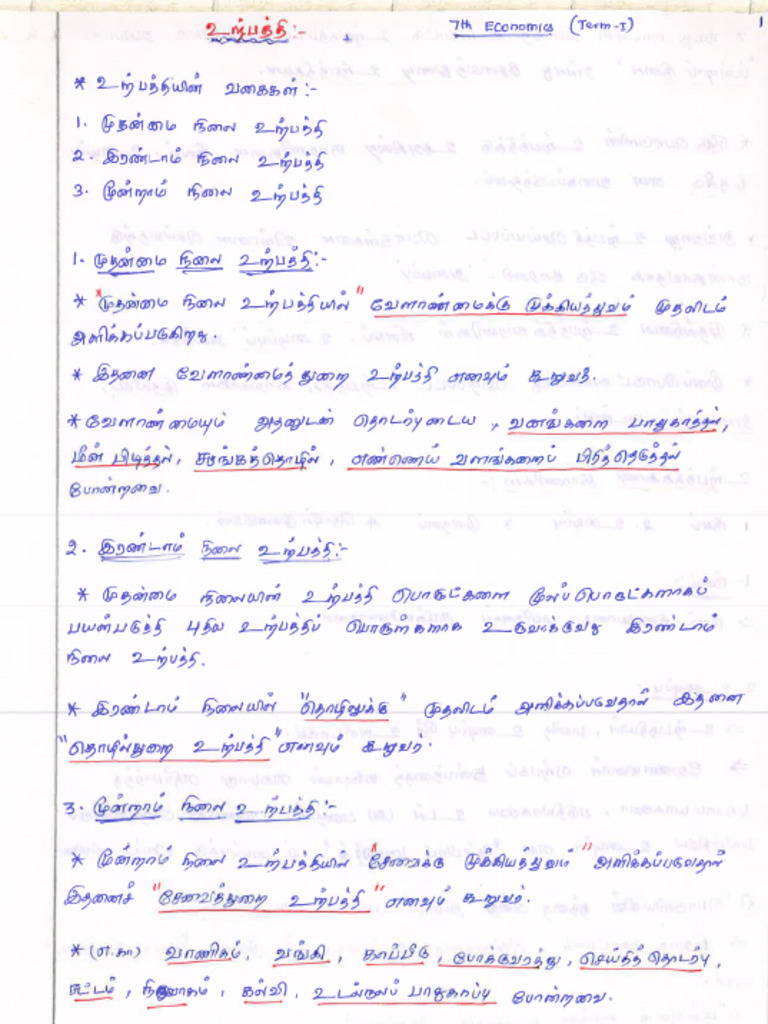 உற்பத்தி :- 7th Economics (Term-I) 1
* உற்பத்தியின் வகைகள் :-
1. முதன்மை நிலை உற்பத்தி
2. இரண்டாம் நிலை உற்பத்தி
3. மூன்றாம் நிலை உற்பத்தி
1. முதன்மை நிலை உற்பத்தி :-
* முதன்மை நிலை உற்பத்தியில் "வேளாண்மைக்கு முக்கியத்துவம் முதலிடம்
அளிக்கப்படுகிறது.
* இதனை வேளாண்மைத்துறை உற்பத்தி எனவும் கூறுவர்.
* வேளாண்மையும் அதனுடன் தொடர்புடைய, வனங்களை பாதுகாத்தல்,
மீன் பிடித்தல், சுரங்கத்தொழில், எண்ணெய் வளங்களைப் பிரித்தெடுத்தல்
போன்றவை.
2. இரண்டாம் நிலை உற்பத்தி :-
* முதன்மை நிலையின் உற்பத்தி பொருட்களை மூலப்பொருட்களாகப்
பயன்படுத்தி புதிய உற்பத்திப் பொருள்களாக உருவாக்குவது இரண்டாம்
நிலை உற்பத்தி.
* இரண்டாம் நிலையில் "தொழிலுக்கு" முதலிடம் அளிக்கப்படுவதால் இதனை
"தொழில்துறை உற்பத்தி" எனவும் கூறுவர்.
3. மூன்றாம் நிலை உற்பத்தி :-
* மூன்றாம் நிலை உற்பத்தியில் "சேவைக்கு முக்கியத்துவம்" அளிக்கப்படுவதால்
இதனைச் "சேவைத்துறை உற்பத்தி" எனவும் கூறுவர்.
* (எ.கா) வாணிகம், வங்கி, காப்பீடு, போக்குவரத்து, செய்தித் தொடர்பு,
சட்டம், நிருவாகம், கல்வி, உடல்நலப் பாதுகாப்பு போன்றவை.